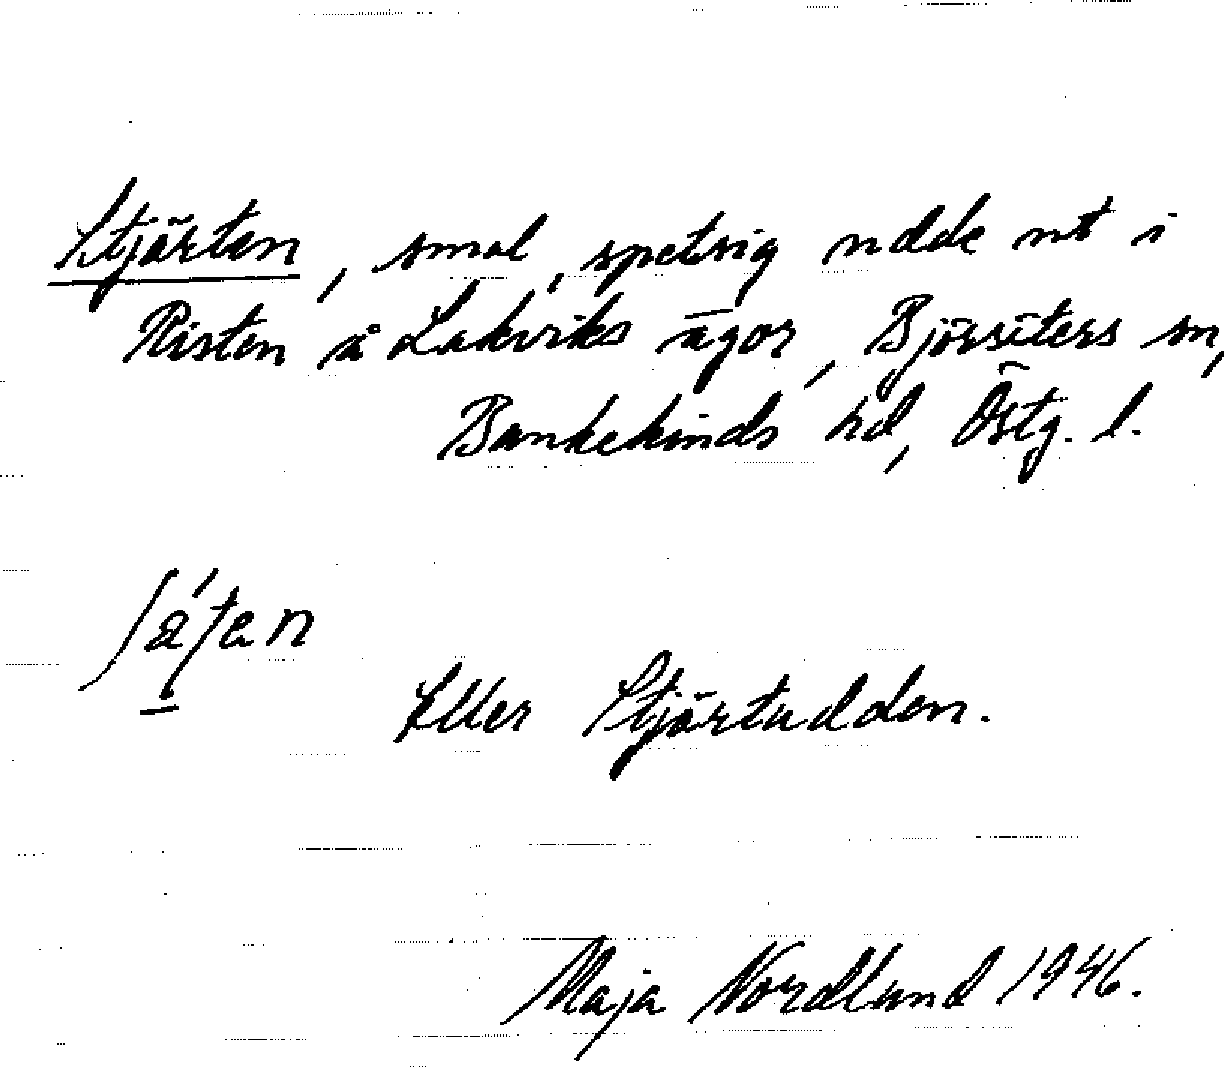 Stjärten, smal, spetsig udde ut i
Risten å Lakviks ägor, Björsäters sn,
Bankekinds hd, Östg. l.
Eller Stjärtudden.
Maja Nordlund 1946.